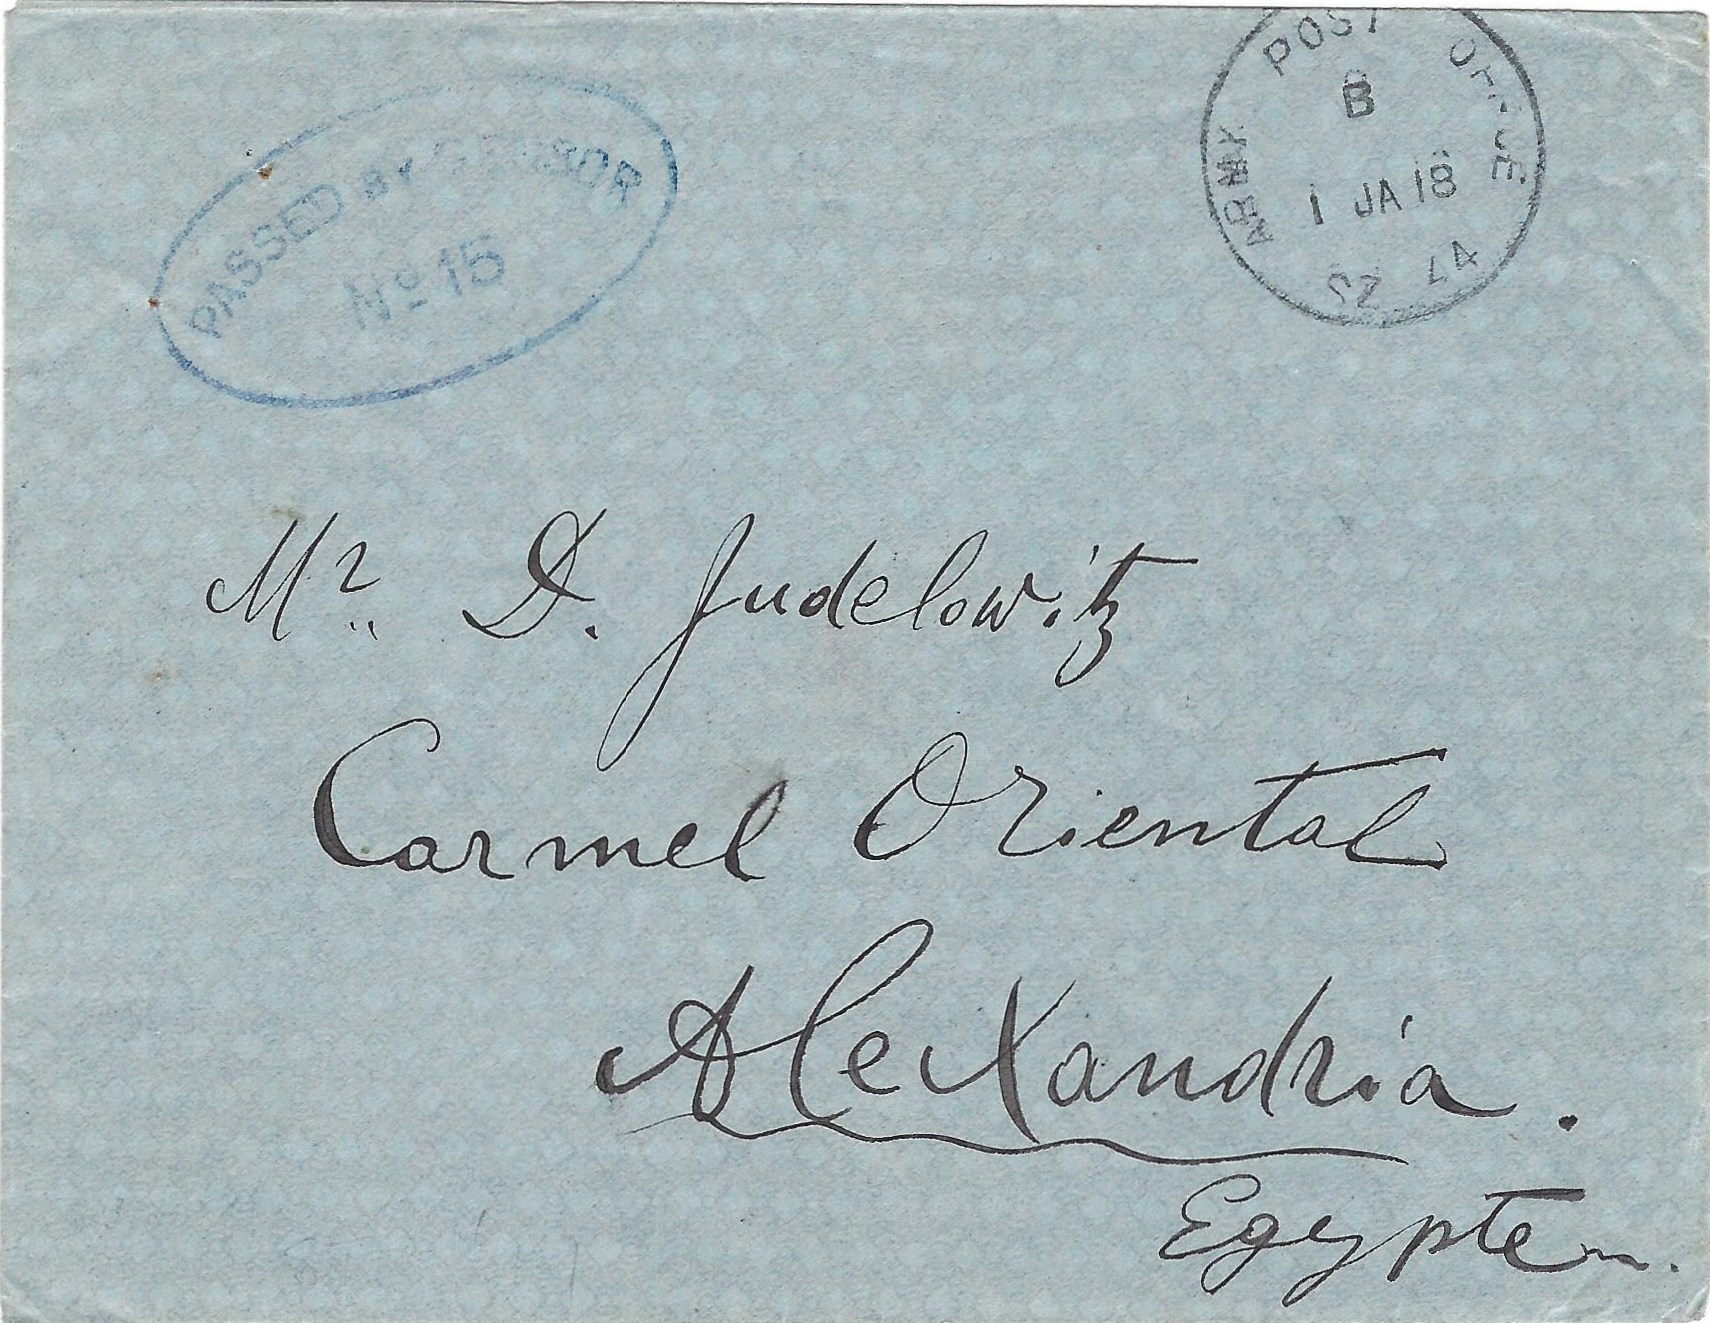 PASSED BY CENSOR
No 15
ARMY POST OFFICE
B
1 JA 18
SZ 44
Mr. D. Judelowitz
Carmel Oriental
Alexandria.
Egypte